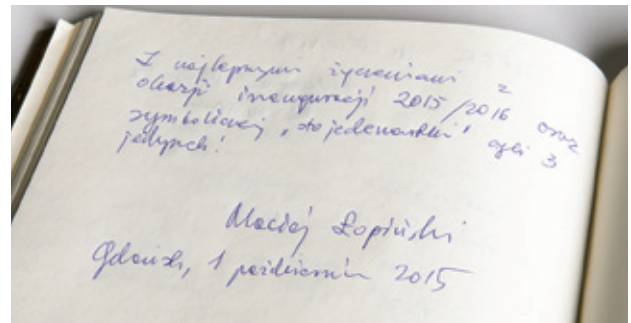 Z najlepszymi życzeniami z
okazji inauguracji 2015/2016 oraz
symbolicznej „sto jedenastki" czyli 3
jedynek!
Maciej Łopiński
Gdańsk, 1 październik 2015